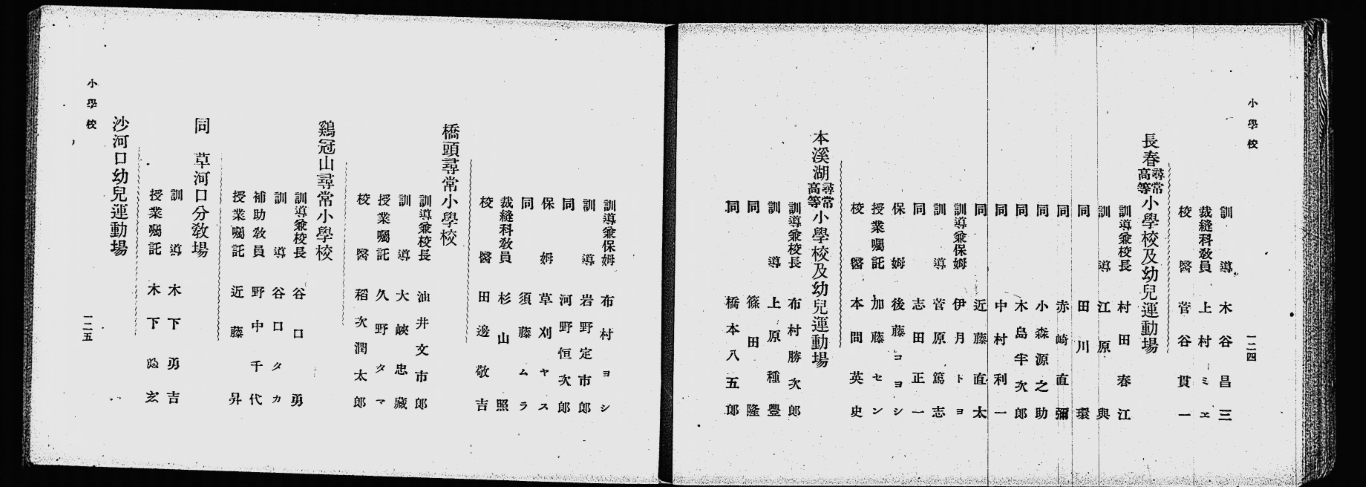 小學校
一二四
訓導 木谷昌三
裁縫科教員 上村ミエ
校醫 菅谷貫一
長春尋常高等小學校及幼兒運動場
訓導兼校長 村田春江
訓導 江原與
同 田川環
同 赤崎直彌
同 小森源之助
同 木島半次郎
同 中村利一
同 近藤直太
訓導兼保姆 伊月トヨ
訓導 菅原篤志
同 志田正一
保姆 後藤コヨシ
授業囑託 加藤セン
校醫 本間英史
本溪湖尋常高等小學校及幼兒運動場
訓導兼校長 布村勝次郎
訓導 上原種豐
同 篠田隆
同 橋本八五郎
訓導兼保姆 布村ヨシ
訓導 岩野定市郎
同 河野恒次郎
保姆 草刈ヤス
同 須藤ムラ
裁縫科教員 杉山照
校醫 田邊敬吉
橋頭尋常小學校
訓導兼校長 油井文市郎
訓導 大皷忠藏
授業囑託 久野タマ
校醫 稻次潤太郎
鷄冠山尋常小學校
訓導兼校長 谷口勇
訓導 谷口タカ
補助教員 野中千代
授業囑託 近藤昇
同 草河口分教場
訓導 木下勇吉
授業囑託 木下玄
沙河口幼兒運動場
小學校
一二五